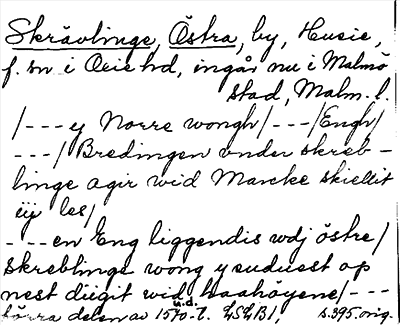 Skrävlinge, Östra, by, Husie,
f. sn i Oxie hd, ingår nu i Malmö
stad, Malm. l.
/---y Norre wongh/---/Engh/
---/ Bredingen vnder skreb-
linge agir wid Marcke skiellit
iij les/
----en Eng liggendis wdj östre/
skreblinge wong y suduest op
nest diigit wid haahöyene/---
förra delen av 1570-t. u.d. LSLB1, s.395. orig.